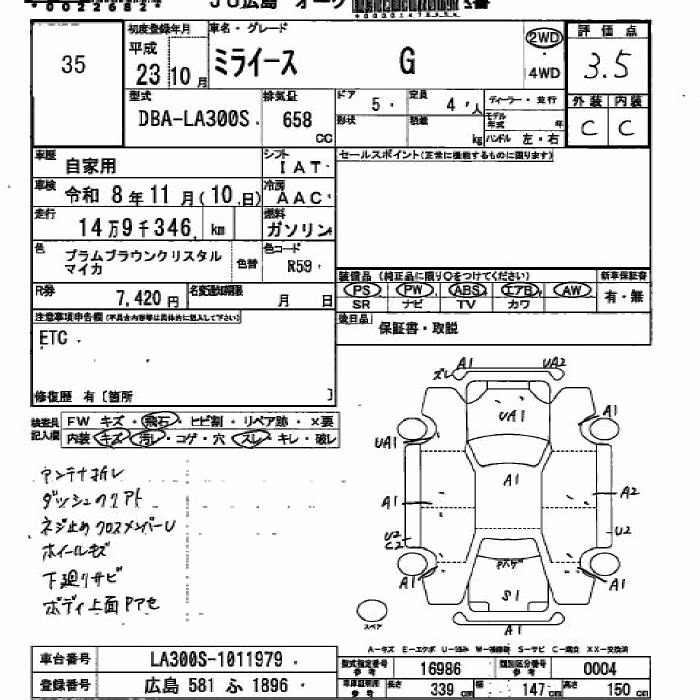 35
初度登録年月
平成
23 10月
車名・グレード
ミライース G
2WD
4WD
評価点
3.5
型式
DBA-LA300S
排気量
658
cc
ドア
5
定員
4 人
ディーラー・並行
形状
積載
kg
モデル年式 年
ハンドル 左・右
外装 内装
C C
車歴
自家用
シフト
IAT
セールスポイント(正常に機能するものに限ります)
車検
令和 8年 11月(10日)
冷房
AAC
走行
14万9千346 km
燃料
ガソリン
色
プラムブラウンクリスタル
マイカ
色替
色コード
R59
装備品(純正品に限り○をつけてください)
新車保証書
PS PW ABS エアB AW
SR ナビ TV カワ
有・無
R券
7,420 円
名変通知期限
月 日
後日品
保証書・取説
注意事項申告欄(不具合内容等は具体的に記入して下さい)
ETC
修復歴 有〔箇所 〕
検査員
記入欄
FW キズ・飛石・ヒビ割・リペア跡・×要
内装 キズ・汚レ・コゲ・穴・スレ・キレ・破レ
アンテナ折レ
ダッシュのリアト
ネジ止め クロスメンバーU
ホイールキズ
下廻りサビ
ボディ上面Pアセ
ズレ A1 UA2
UA1
A1
UA1
A1
A1
A2
U2
C2
U2
Pハゲ
S1
A1
A1
A1
スペア
A-キズ E-エクボ U-凹み W-補修跡 S-サビ C-腐食 XX-交換済
車台番号
LA300S-1011979
型式指定番号
参考
16986
類別区分番号
参考
0004
登録番号
広島 581 ふ 1896
長さ
339 cm
幅
147 cm
高さ
150 cm